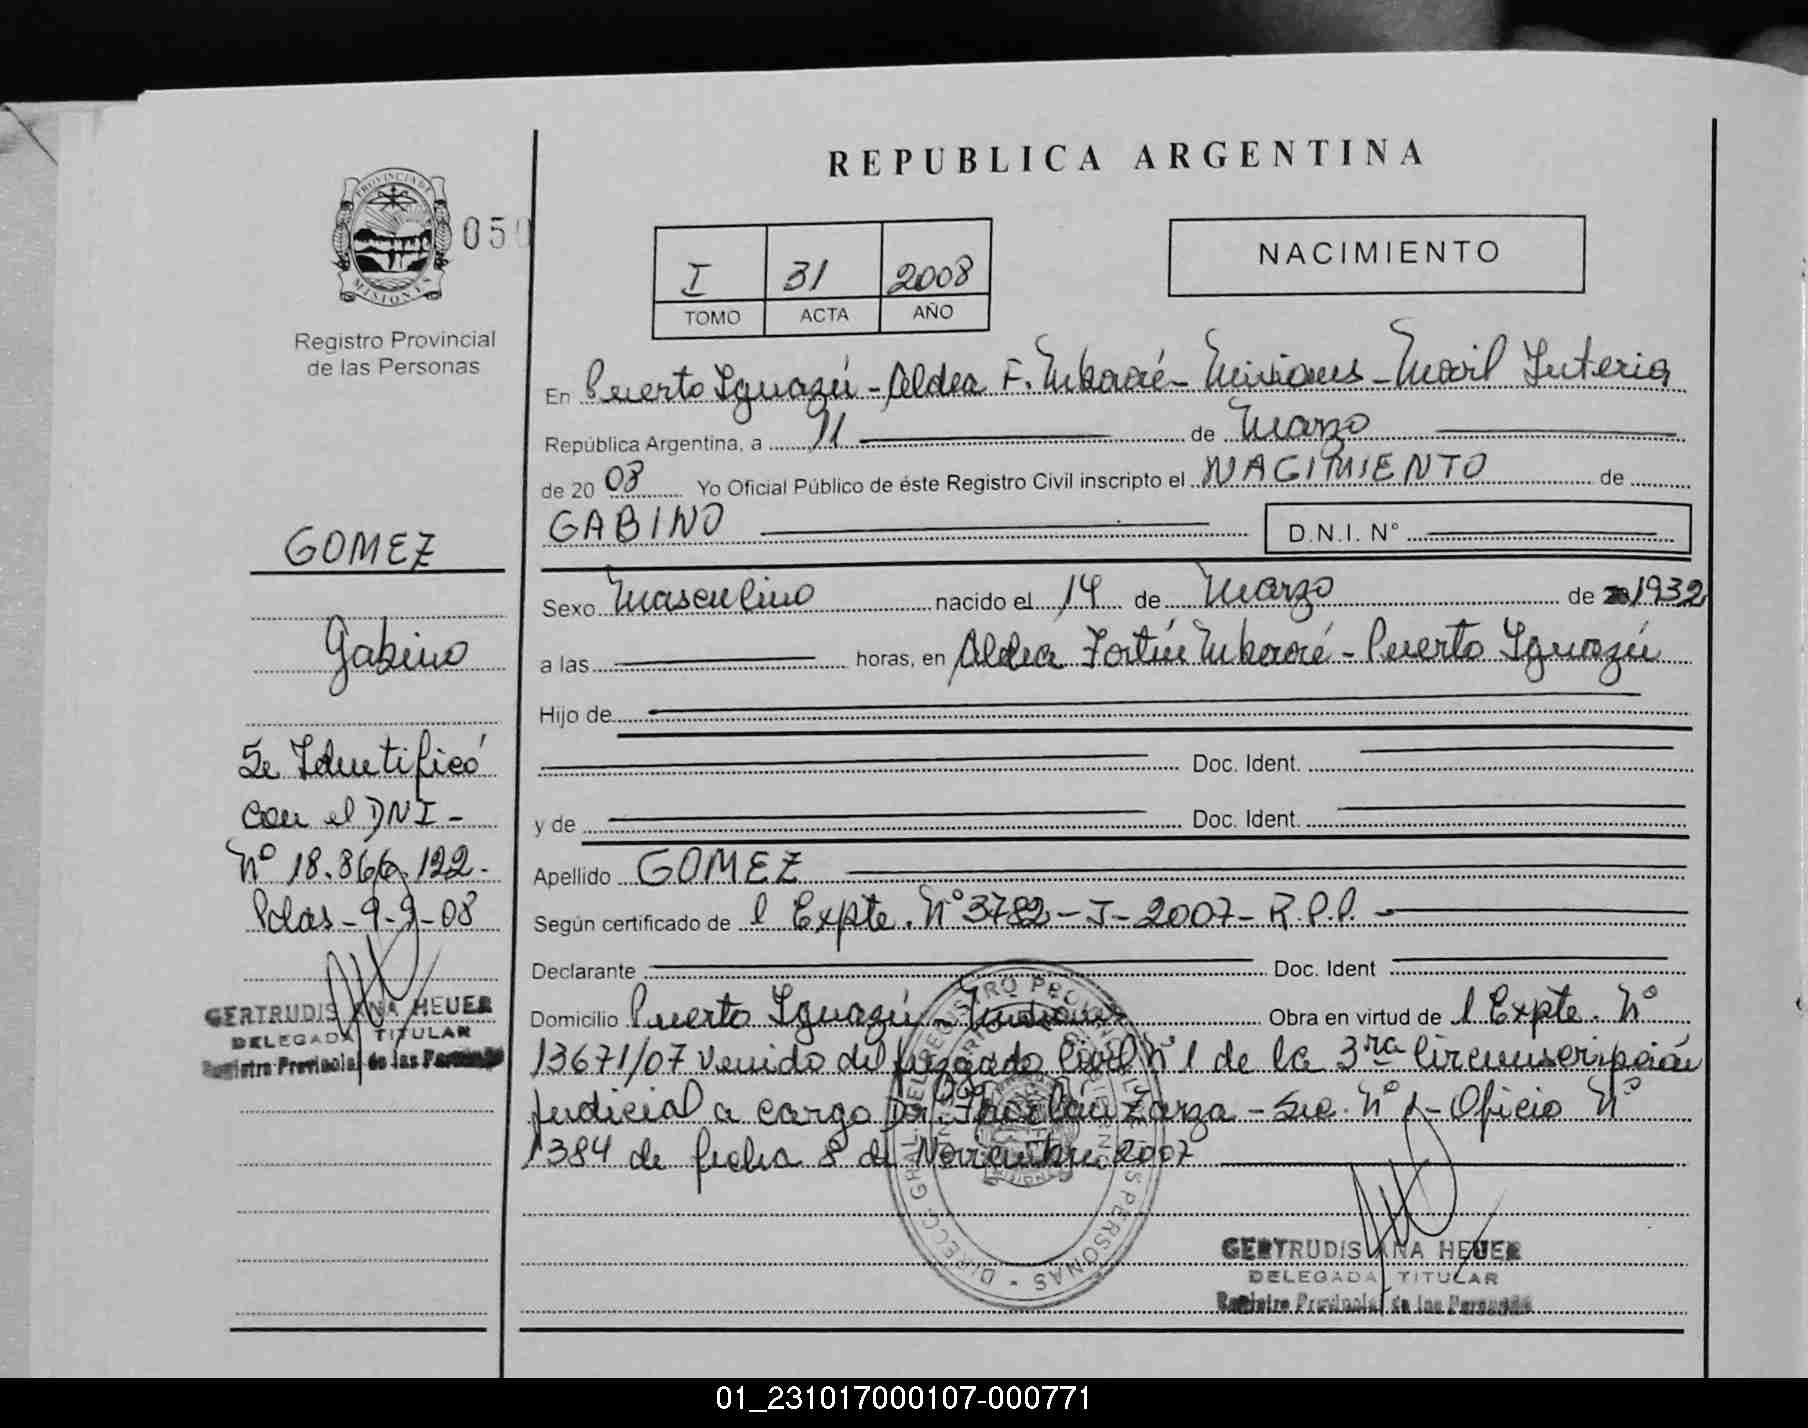 REPUBLICA ARGENTINA
PROVINCIA DE
MISIONES
050
Registro Provincial
de las Personas
I 31 2008
TOMO ACTA AÑO
NACIMIENTO
En Puerto Iguazú - Aldea F. Mbororé - Misiones - Movil Interia
República Argentina, a 11 de Marzo
de 20 08 Yo Oficial Público de éste Registro Civil inscripto el NACIMIENTO de
GABINO D.N.I. N°
Sexo Masculino nacido el 14 de Marzo de 1932
a las horas, en Aldea Fortín Mbororé - Puerto Iguazú
Hijo de
Doc. Ident.
y de Doc. Ident.
Apellido GOMEZ
Según certificado de l Expte. N° 3782 - J - 2007 - R.P.P.
Declarante Doc. Ident
Domicilio Puerto Iguazú - Misiones Obra en virtud de l Expte. N°
13671/07 venido del Juzgado Civil N° 1 de la 3ra Circunscripción
Judicial a cargo Dr. Zarza - Sec. N° 1 - Oficio N°
1384 de fecha 8 de Noviembre 2007
GERTRUDIS ANA HEUER
DELEGADA TITULAR
Registro Provincial de las Personas
GOMEZ
Gabino
Se Identificó
con el DNI -
N° 18.866.122.
Pdas - 9-9-08
GERTRUDIS ANA HEUER
DELEGADA TITULAR
Registro Provincial de las Personas
01_231017000107-000771